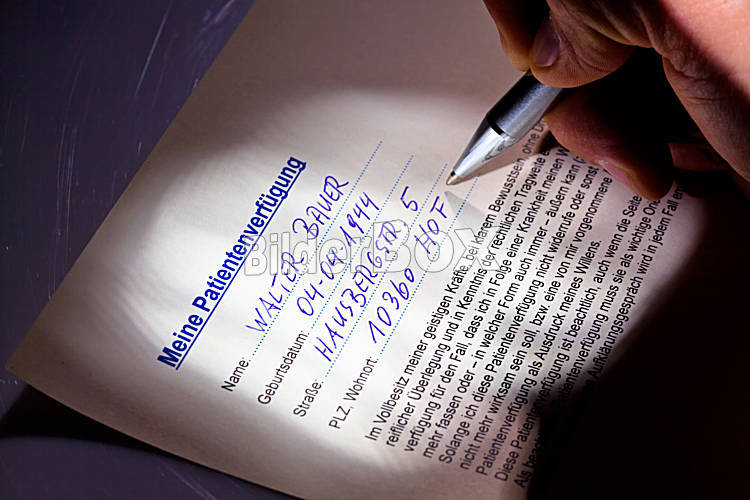 Meine Patientenverfügung
Name: WALTER BAUER
Geburtsdatum: 04-04-1944
Straße: HAUSBERGSTR. 5
PLZ. Wohnort: 10360 HOF
Im Vollbesitz meiner geistigen Kräfte, bei klarem Bewusstsein, ohne
reiflicher Überlegung und in Kenntnis der rechtlichen Tragweite
verfügung für den Fall, dass ich in Folge einer Krankheit meinen
mehr fassen oder – in welcher Form auch immer – äußern kann
Solange ich diese Patientenverfügung nicht widerrufe oder sonst
nicht mehr wirksam sein soll bzw. eine von mir vorgenommene
Diese Patientenverfügung als Ausdruck meines Willens.
Patientenverfügung ist beachtlich, auch wenn die Seite
Patientenverfügung muss sie als wichtige
Aufklärungsgespräch wird in jedem Fall
BilderBox